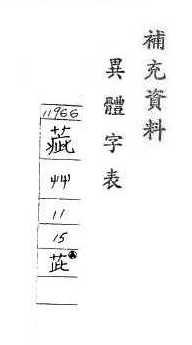 補充資料
異體字表
11966
艸
11
15
茈